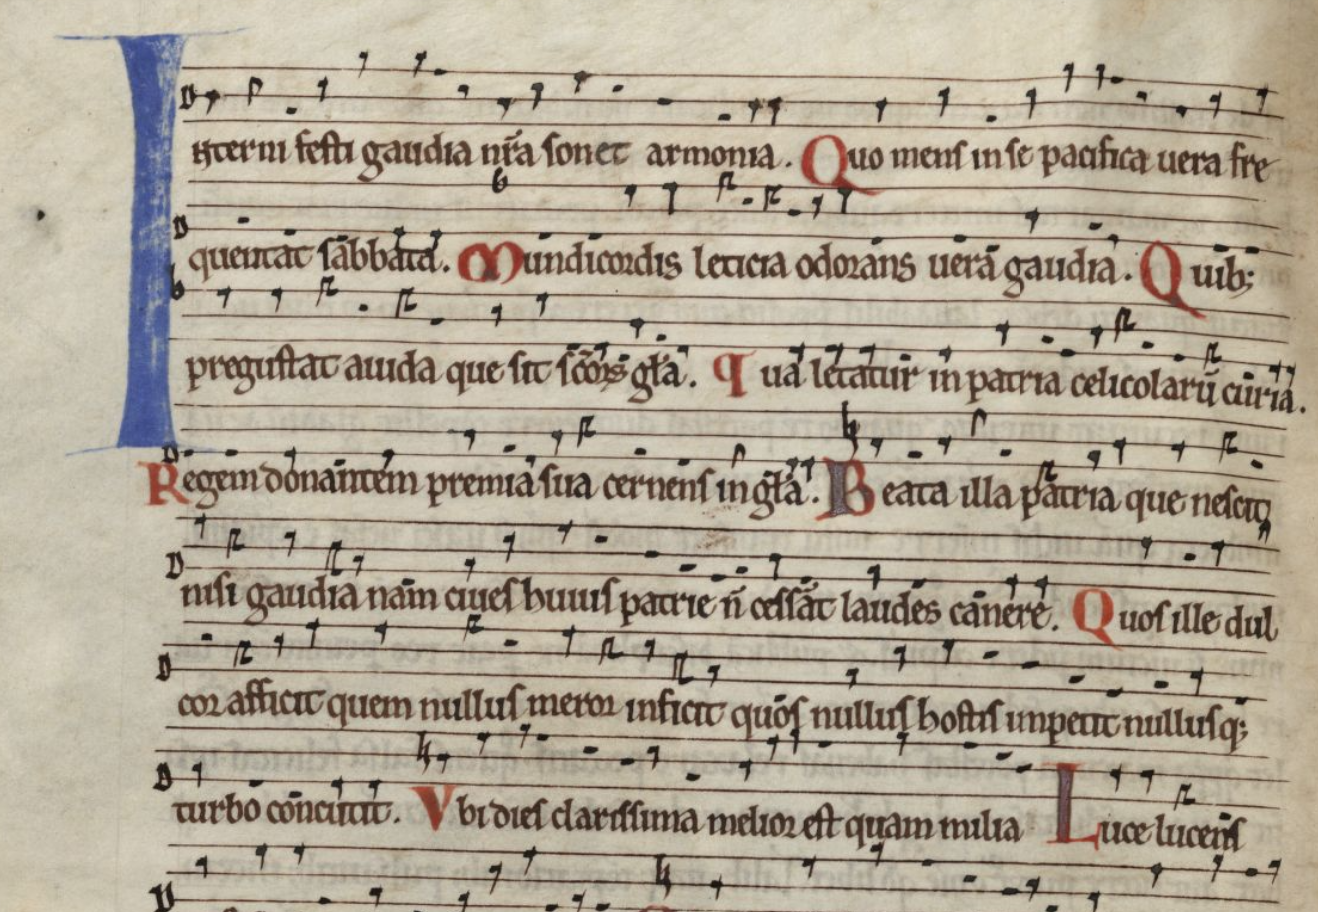 Interni festi gaudia nr̃a sonet armonia. Quo mens in se pacifica uera fre
quentat sabbata. Mundi cordis leticia odorans uera gaudia. Quib;
pregustat auida que sit sc̃oꝝ gl̃a. Qua letatur in patria celicolarũ curia.
Regem donantem premia sua cernens in gl̃a. Beata illa patria que nescit
nisi gaudia nam ciues huius patrie ñ cessant laudes canere. Quos ille dul
cor afficit quem nullus meror inficit quos nullus hostis impetit nullusq;
turbo concutit. Vbi dies clarissima melior est quam milia Luce lucens